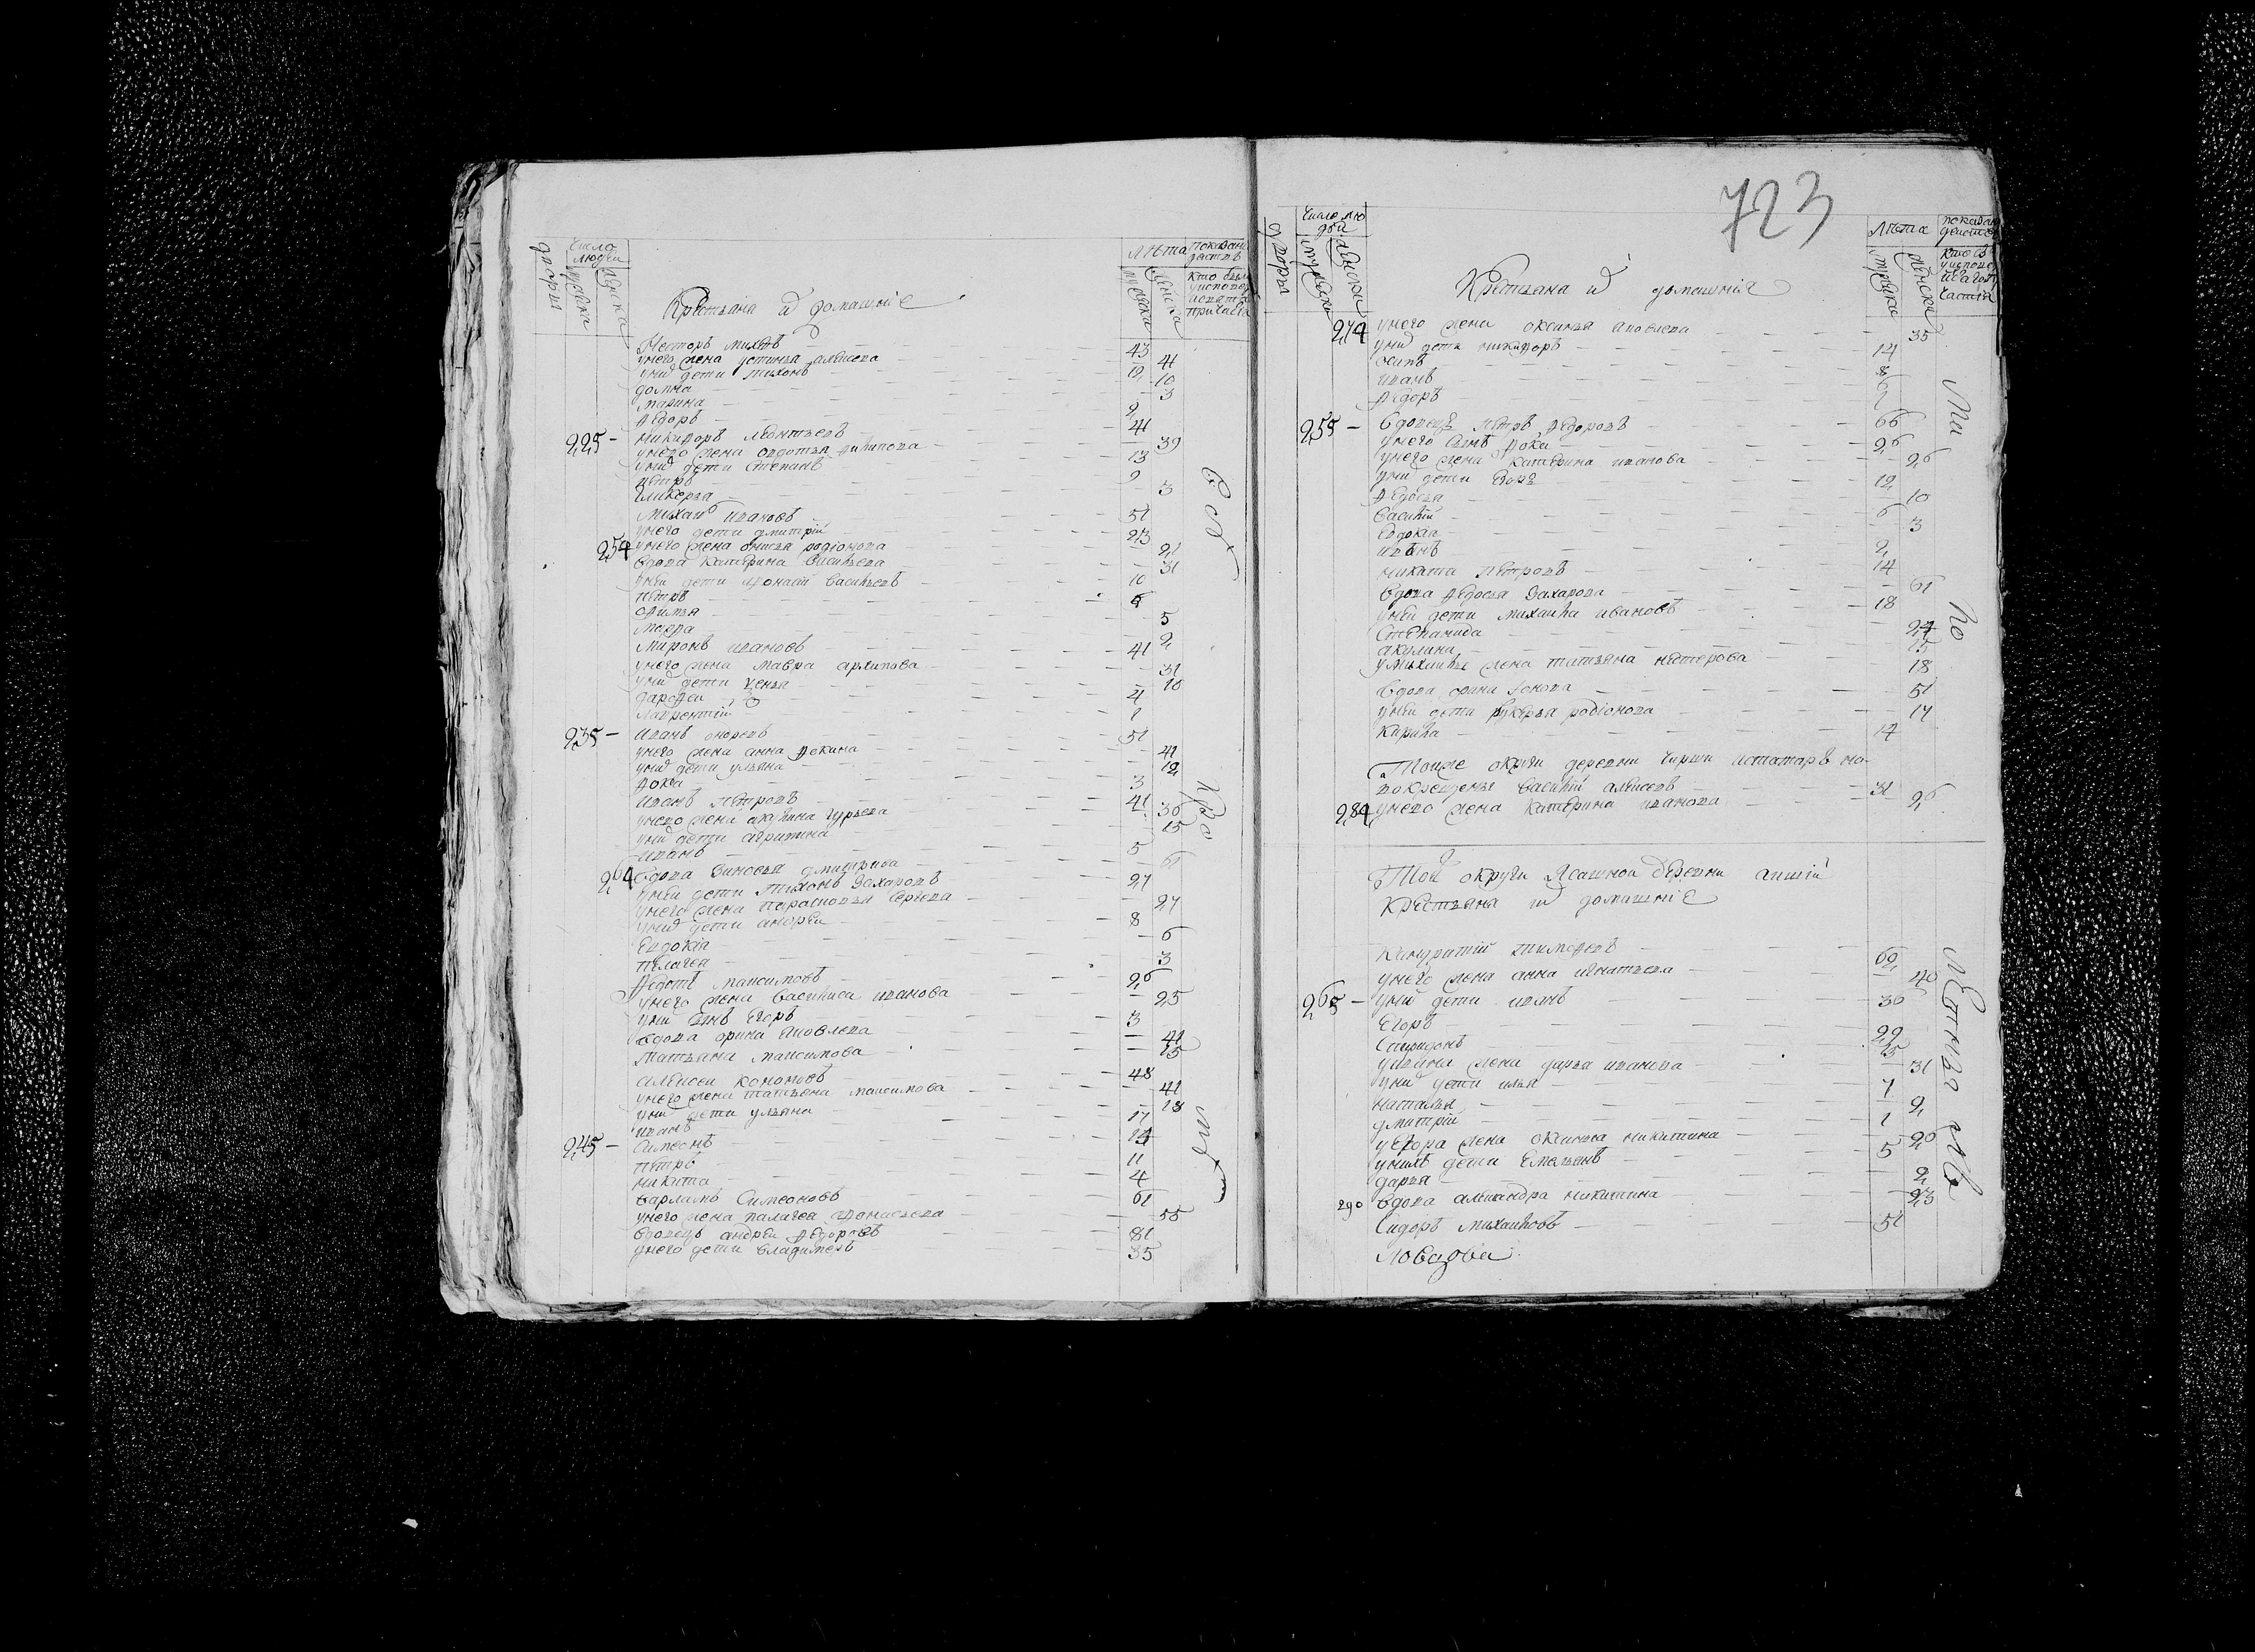 число людей
дворы
мужска
женска
Крестьяна и домашніе
лѣта
мужска
женска
показан действ
кто был у исповеди и святаго причастія
Несторъ 43
у него жена устинья алексеева 41
у них дети Тихонъ 12
домна 10
марина 3
Ѳедоръ 2
225 - никифоръ леонтьевъ 41
у него жена овдотья филипова 39
у них дети степанъ 13
петръ 9
гликерья 3
михаил ивановъ 51
у него дети дмитрій 23
254 у него жена онисья родіонова 21
вдова катерина васильева 31
у ней дети афонасій васильевъ 10
петръ 6
офимья 5
марфа 2
миронъ ивановъ 41
у него жена мавра архипова 31
у них дети ксенья 10
дорофеи 4
лаврентій 1
235 - иванъ ондреевъ 51
у него жена анна фокина 41
у них дети ульяна 12
фока 3
иванъ петровъ 41
у него жена акулина гурьева 36
у них дети аграпина 15
иванъ 5
264 вдова зиновья дмитріева 61
у ней дети тихонъ захаровъ 27
у него жена парасковья сергеева 27
у них дети андреи 8
евдокія 6
пелагея 3
Ѳедотъ максимовъ 26
у него жена василиса иванова 25
у них сынъ егоръ 3
вдова орина яковлева 41
татьяна максимова 15
алексеи кононовъ 48
у него жена татьяна максимова 41
у них дети ульяна 18
иванъ 17
245 - симеонъ 14
петръ 11
никита 4
варламъ симеоновъ 61
у него жена палагея афонасьева 55
вдовецъ андреи Ѳедоровъ 81
у него дети владимеръ 35
723
число людей
дворы
мужска
женска
Крестьяна и домашніе
лѣта
мужска
женска
274 у него жена оксинья яковлева 35
у них дети никифоръ 14
осипъ 8
иванъ 6
Ѳедоръ
255 - вдовецъ петръ Ѳедоровъ 66
у него сынъ фока 26
у него жена катерина иванова 26
у них дети егоръ 12
Ѳедосья 10
василій 6
евдокія 3
иванъ 2
никита петровъ 14
вдова Ѳедосья захарова 61
у ней дети михаила ивановъ 18
степанида 24
акулина 15
у михаилы жена татьяна нестерова 18
вдова орина 51
у ней дети лукерья родіонова 17
кирила 17
Тоиже округи деревни чирши истатаръ но-
вокрещены василій алексеевъ 31
284 у него жена катерина иванова 26
Той округи Ясашной деревни
крестьяна и домашніе
тимофеевъ 62
у него жена анна игнатьева 40
265 - у них дети иванъ 30
егоръ 22
спиридонъ 15
у ивана жена дарья иванова 31
у них дети илья 7
наталья 2
дмитрій 1
у егора жена оксинья никитина 20
у них дети емельянъ 5
дарья 2
290 вдова александра никитина 23
сидоръ михаиловъ 51